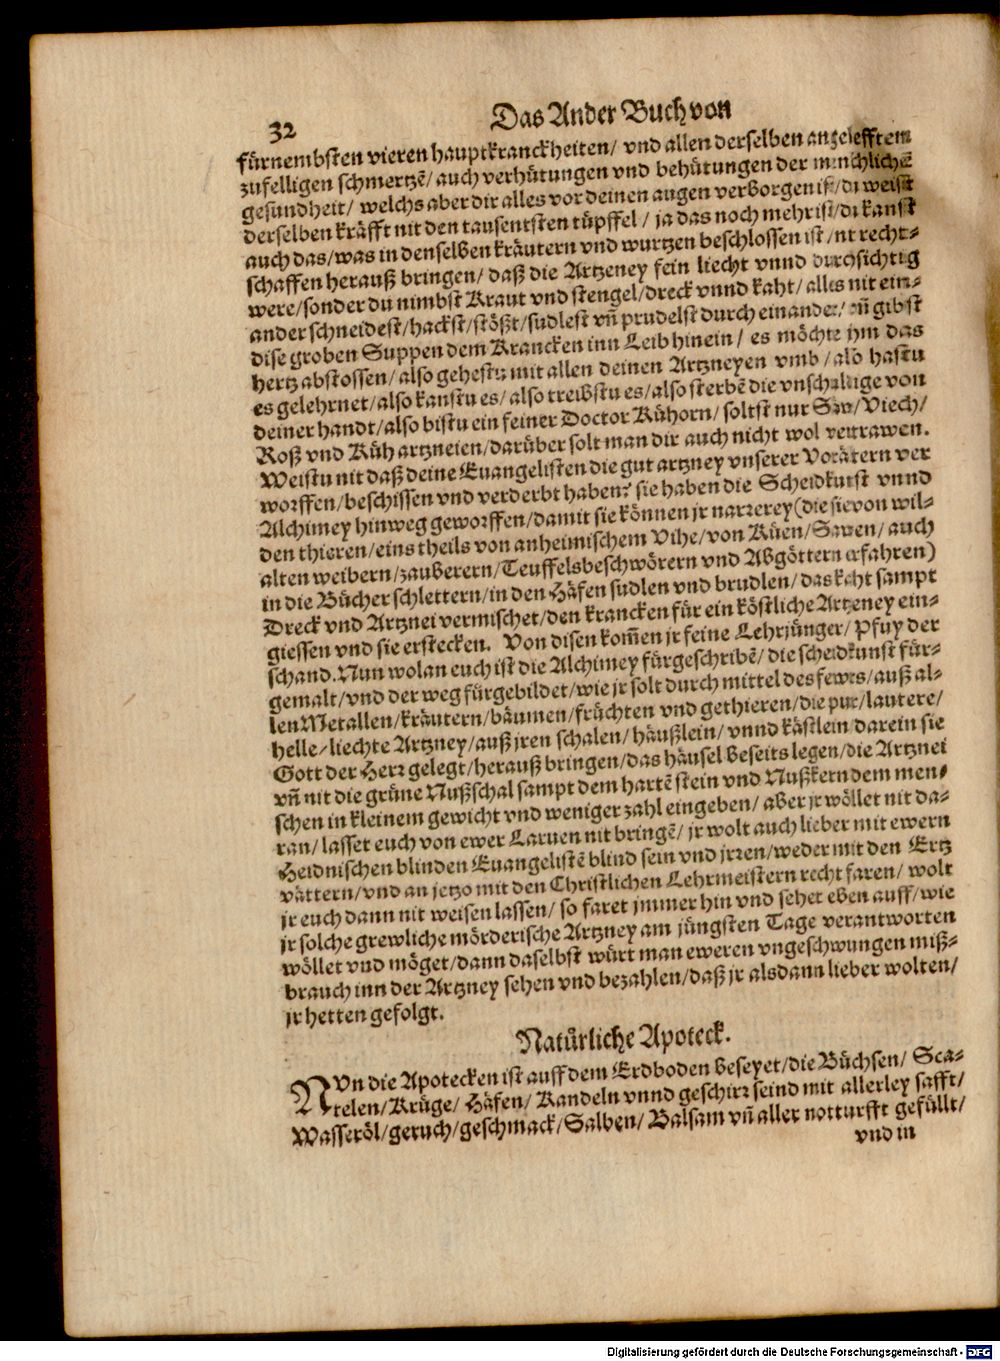 32
Das Ander Buch von
fürnembsten vieren hauptkranckheiten/ vnd allen derselben
zufelligen schmertzẽ/ auch verhütungen vnd behütungen der
gesundheit/ welchs aber dir alles vor deinen augen verborgen ist/ du weist
derselben kräfft nit den tausentsten tüpffel/ ja das noch mehr ist/ du kanst
auch das/ was in denselben kräutern vnd wurtzen beschlossen ist/ nit recht-
schaffen herauß bringen/ daß die Artzeney fein liecht vnnd durchsichtig
were/ sonder du nimbst Kraut vnd stengel/ dreck vnnd kaht/ alles nit ein-
ander schneidest/ hackst/ stößt/ sudlest vñ prudelst durch einander/ vñ gibst
dise groben Suppen dem Krancken inn Leib hinein/ es möchte jhm das
hertz abstossen/ also gehestu mit allen deinen Artzneyen vmb/ also hastu
es gelehrnet/ also kanstu es/ also treibstu es/ also sterbẽ die vnschuldige von
deiner handt/ also bistu ein feiner Doctor Kühorn/ soltst nur Saw/ Viech/
Roß vnd Küh artzneien/ darüber solt man dir auch nicht wol vertrawen.
Weistu nit daß deine Euangelisten die gut artzney vnserer Vorätern ver
worffen/ beschissen vnd verderbt haben? sie haben die Scheidkunst vnnd
Alchimey hinweg geworffen/ damit sie können jr narrerey (die sie von wil-
den thieren/ eins theils von anheimischem Vihe/ von Küen/ Sauen/ auch
alten weibern/ zauberern/ Teuffelsbeschwörern vnd Abgöttern erfahren)
in die Bücher schlettern/ in den Häfen sudlen vnd brudlen/ das kaht sampt
Dreck vnd Artznei vermischet/ den krancken für ein köstliche Artzeney ein-
giessen vnd sie erstecken. Von disen kom̃en jr feine Lehrjünger/ Pfuy der
schand. Nun wolan euch ist die Alchimey fürgeschribẽ/ die scheidkunst für-
gemalt/ vnd der weg fürgebildet/ wie jr solt durch mittel des fewrs/ auß al-
len Metallen/ kräutern/ bäumen/ früchten vnd gethieren/ die pur/ lautere/
helle/ liechte Artzney/ auß jren schalen/ häußlein/ vnnd kästlein darein sie
Gott der Herr gelegt/ herauß bringen/ das häusel beseits legen/ die Artznei
vñ nit die grüne Nußschal sampt dem hartẽ stein vnd Nußkern dem men-
schen in kleinem gewicht vnd weniger zahl eingeben/ aber jr wöllet nit da-
ran/ lasset euch von ewer Laruen nit bringẽ/ jr wolt auch lieber mit ewern
Heidnischen blinden Euangelistẽ blind sein vnd jrren/ weder mit den Ertz
vättern/ vnd an jetzo mit den Christlichen Lehrmeistern recht faren/ wolt
jr euch dann nit weisen lassen/ so faret jmmer hin vnd sehet eben auff/ wie
jr solche grewliche mörderische Artzney am jüngsten Tage verantworten
wöllet vnd möget/ dann daselbst würt man eweren vngeschwungen miß-
brauch inn der Artzney sehen vnd bezahlen/ daß jr alsdann lieber wolten/
jr hetten gefolgt.
Natürliche Apoteck.
NVn die Apotecken ist auff dem Erdboden beseyet/ die Büchsen/ Sca-
telen/ Krüge/ Häfen/ Kandeln vnnd geschirr seind mit allerley safft/
Wasseröl/ geruch/ geschmack/ Salben/ Balsam vñ aller notturfft gefüllt/
vnd in
Digitalisierung gefördert durch die Deutsche Forschungsgemeinschaft - DFG